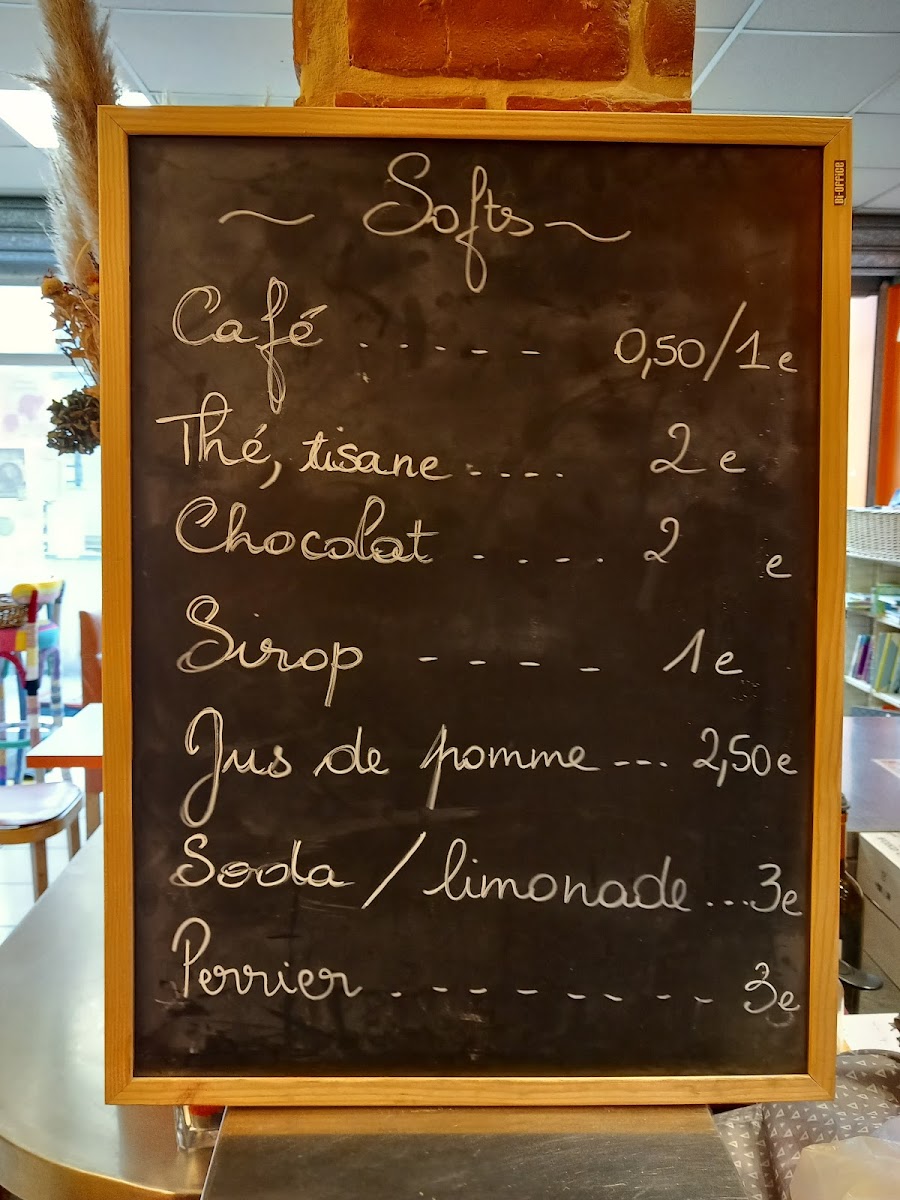 ~ Softs ~
BI-OFFICE
Café ..--- 0,50/1 e
Thé, tisane .... 2 e
Chocolat .... 2 e
Sirop ---- 1 e
Jus de pomme --- 2,50 e
Soda / limonade ... 3 e
Perrier .-------- 3 e